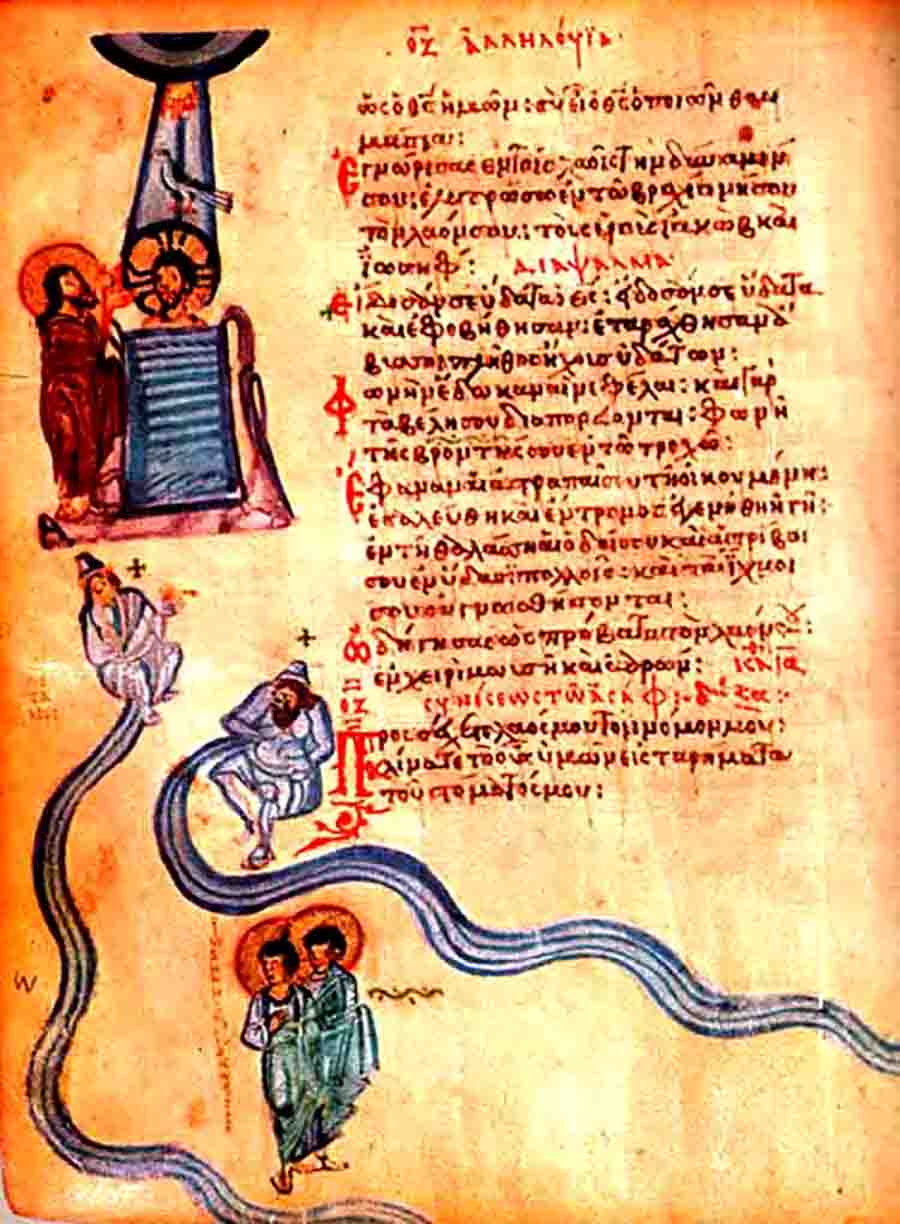 οζ ἀλληλούϊα
ὡς ὁ θς ἡμῶν: σὺ εἶ ὁ θεὸς ὁ ποιῶν θαυ
μάσια:
Ἐγνώρισας ἐν τοῖς λαοῖς τὴν δύναμίν
σου: ἐλυτρώσω ἐν τῶ βραχίονί σου
τὸν λαόν σου: τοὺς υἱοὺς ἰακὼβ καὶ
ἰωσήφ: διάψαλμα
Εἴδοσάν σε ὕδατα ὁ θς: εἴδοσάν σε ὕδατα
καὶ ἐφοβήθησαν: ἐταράχθησαν ἄ
βυσσοι πλῆθος ἤχους ὑδάτων:
Φωνὴν ἔδωκαν αἱ νεφέλαι: καὶ γὰρ
τὰ βέλη σου διαπορεύονται: φωνὴ
τῆς βροντῆς σου ἐν τῶ τροχῶ:
Ἔφαναν αἱ ἀστραπαί σου τῆ οἰκουμένη:
ἐσαλεύθη καὶ ἔντρομος ἐγενήθη ἡ γῆ:
ἐν τῆ θαλάσση αἱ ὁδοί σου καὶ αἱ τρίβοι
σου ἐν ὕδασι πολλοῖς: καὶ τὰ ἴχνη
σου οὐ γνωσθήσονται:
Ὡδήγησας ὡς πρόβατα τὸν λαόν σου:
ἐν χειρὶ μωυσῆ καὶ ἀαρών:
οζ συνέσεως τῶ ἀσάφ:
Προσέχετε λαός μου τὸν νόμον μου:
κλίνατε τὸ οὖς ὑμῶν εἰς τὰ ῥήματα
τοῦ στόματός μου: